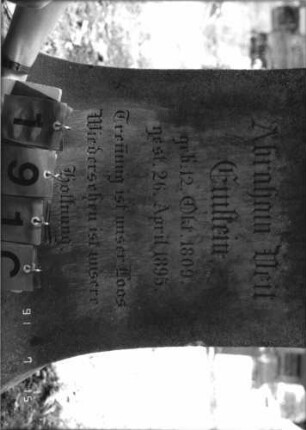 Abraham Weil
Einstein
geb. 12. Okt. 1809.
gest. 26. April 1895.
Trennung ist unser Loos
Wiedersehen ist unsere
Hoffnung
191C